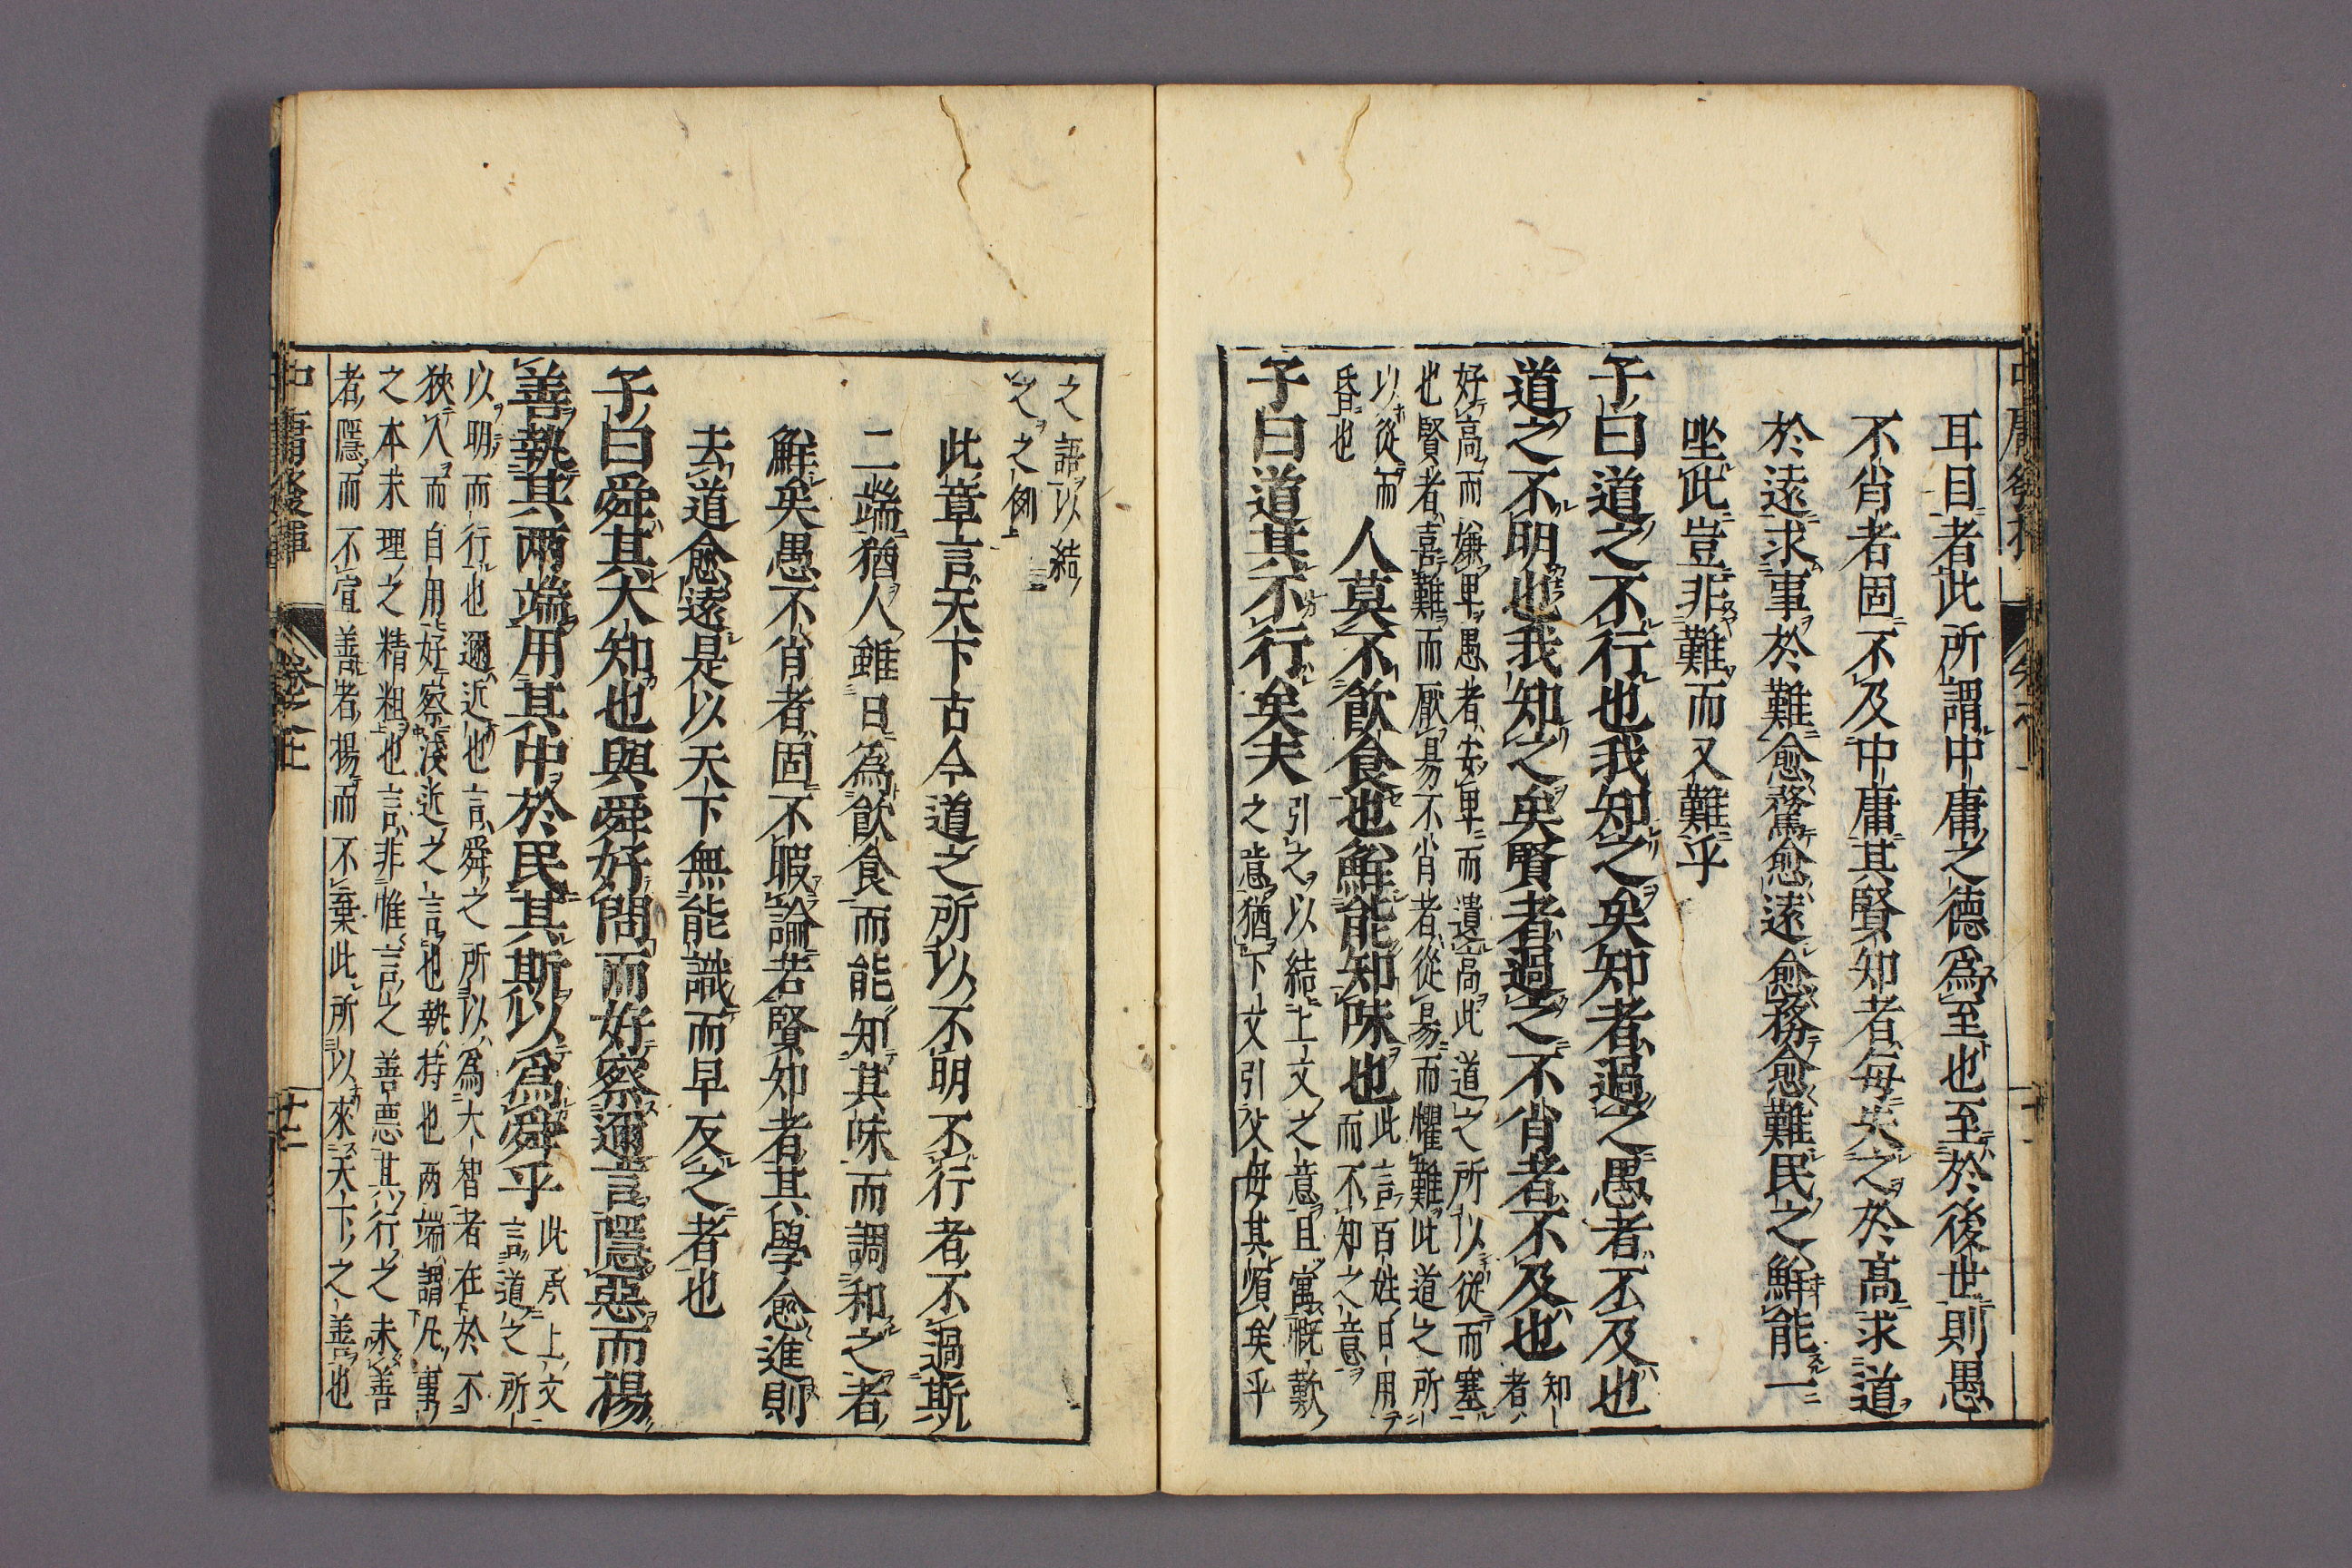 耳目者此所謂中庸之德爲至也至於後世則愚
不肖者固不及中庸其賢知者每失之於髙求道
於遠求事於難愈騖愈遠愈務愈難民之鮮能一
坐此豈非難而又難乎
子曰道之不行也我知之矣知者過之愚者不及也
道之不明也我知之矣賢者過之不肖者不及也
知
者
好高而嫌卑愚者安卑而遺高此道之所以從而塞
也賢者喜難而厭易不肖者從易而懼難此道之所
以從而
昏也
人莫不飮食也鮮能知味也
此言百姓日用
而不知之意
子曰道其不行矣夫
引之以結上文之意且寓慨歎
之意猶下文引父母其順矣乎
之語以結
之之例
此章言天下古今道之所以不明不行者不過斯
二端猶人雖日爲飮食而能知其味而調和之者
鮮矣愚不肖者固不暇論若賢知者其學愈進則
去道愈遠是以天下無能識而早反之者也
子曰舜其大知也與舜好問而好察邇言隱惡而揚
善執其兩端用其中於民其斯以爲舜乎
此承上文
言道之所
以明而行也邇近也言舜之所以爲大智者在於不
狹人而自用好察淺近之言也執持也両端謂凡事
之本末理之精粗也言非惟言之善惡其行之未善
者隱而不宣善者揚而不棄此所以來天下之善也
中庸發揮
十二